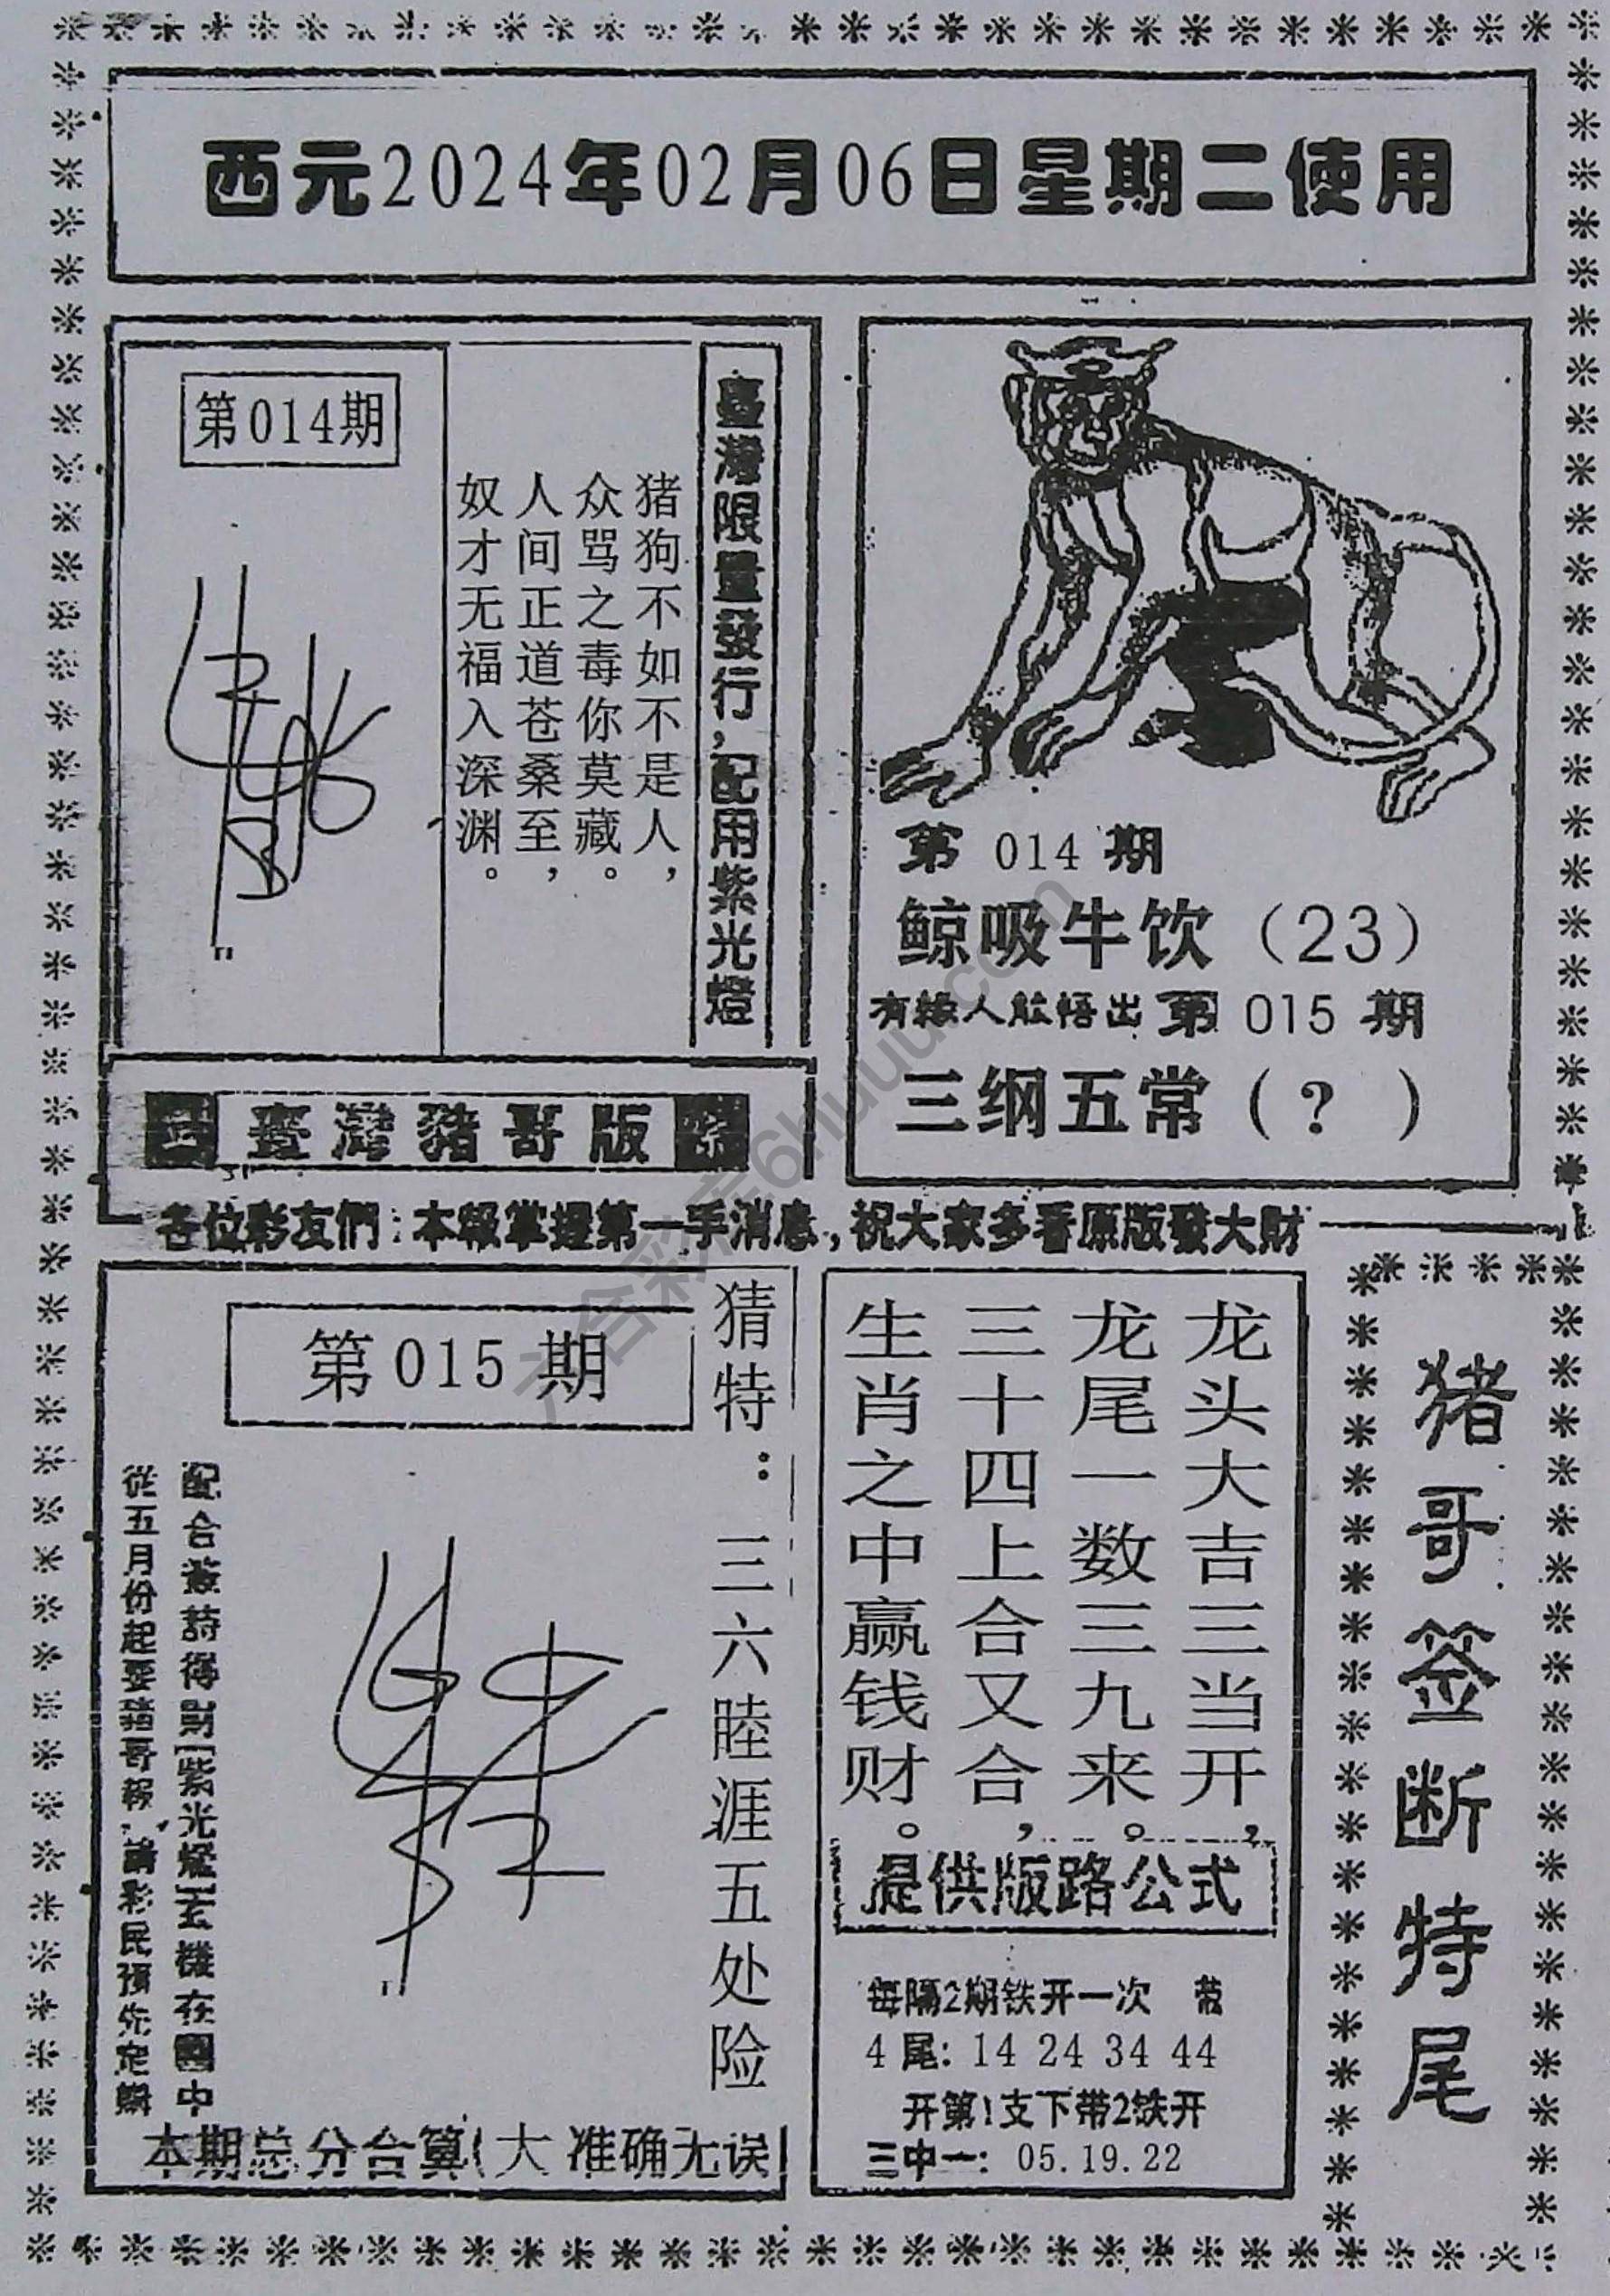 西元2024年02月06日星期二使用
第014期
臺灣限量發行,配用紫光燈
猪狗不如不是人，
众骂之毒你莫藏。
人间正道苍桑至，
奴才无福入深渊。
第 014 期
鲸吸牛饮（23）
有緣人能悟出 第 015 期
三纲五常（?）
臺灣豬哥版
各位彩友們:本報掌握第一手消息,祝大家多看原版發大財
第015期
猜特：三六睦涯五处险
從五月份起要豬哥報,請彩民預先定購
本期总分合算(大 准确无误)
龙头大吉三当开，
龙尾一数三九来。
三十四上合又合，
生肖之中赢钱财。
提供版路公式
每隔2期铁开一次
4尾: 14 24 34 44
开第1支下带2铁开
三中一: 05.19.22
猪哥签断特尾
六合彩库6huuu.com